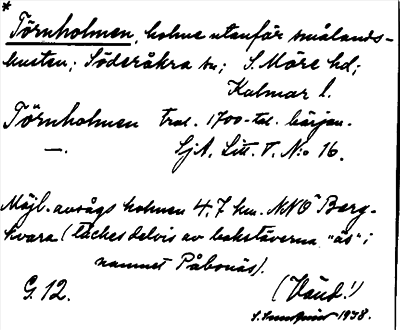 *
Törnholmen, holme utanför smålands-
kusten; Söderåkra sn; S. Möre hd;
Kalmar l.
Törnholmen trol. 1700-tal. början.
—. SjA. Litt. T. N:o 16.
Möjl. avsågs holmen 4,7 km. NNÖ Berg-
kvara (täckes delvis av bokstäverna "ås" i
namnet Påbonäs).
G. 12. (Vänd!)
S. 1938.